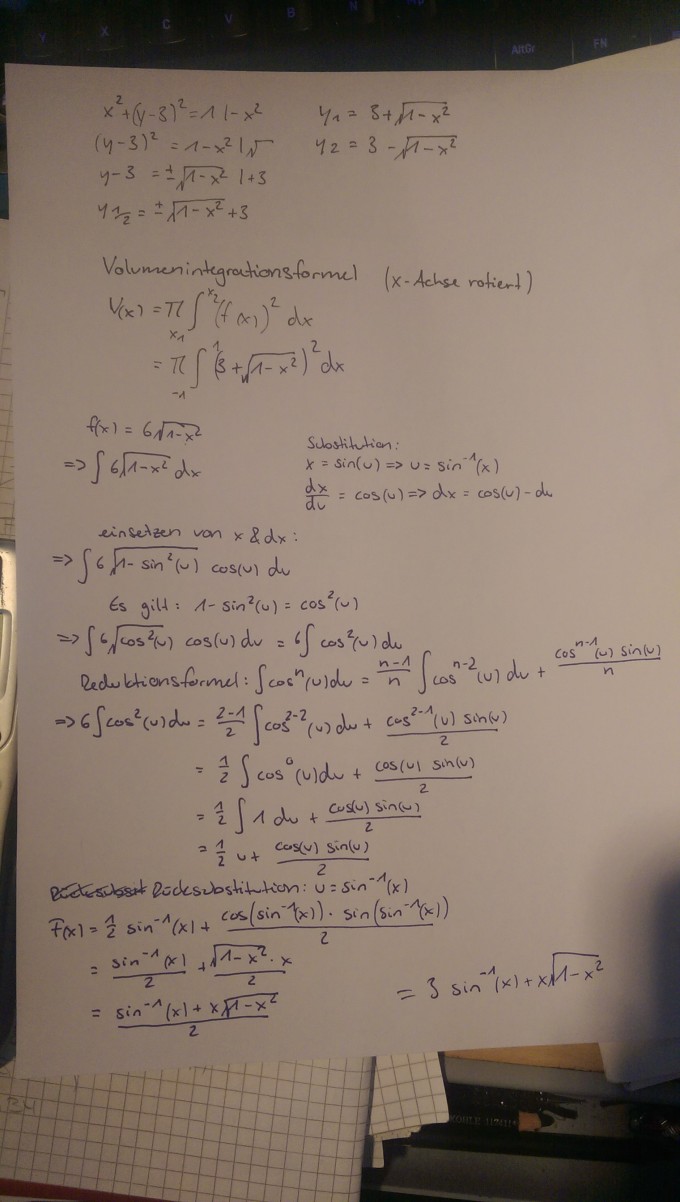 Y X C V B N
AltGr FN
x² + (y-3)² = 1 | - x²
(y-3)² = 1 - x² | √
y-3 = ±√(1-x²) | +3
y 1/2 = ±√(1-x²) + 3
y1 = 3 + √(1-x²)
y2 = 3 - √(1-x²)
Volumenintegrationsformel (x-Achse rotiert)
V(x) = π ∫_{x1}^{x2} (f(x))² dx
= π ∫_{-1}^{1} (3 + √(1-x²))² dx
f(x) = 6√(1-x²)
=> ∫ 6√(1-x²) dx
Substitution:
x = sin(u) => u = sin⁻¹(x)
dx/du = cos(u) => dx = cos(u) - du
einsetzen von x & dx:
=> ∫ 6 √(1 - sin²(u)) cos(u) du
Es gilt: 1 - sin²(u) = cos²(u)
=> ∫ 6 √(cos²(u)) cos(u) du = 6 ∫ cos²(u) du
Reduktionsformel: ∫ cosⁿ(u) du = (n-1)/n ∫ cosⁿ⁻²(u) du + (cosⁿ⁻¹(u) sin(u))/n
=> 6 ∫ cos²(u) du = (2-1)/2 ∫ cos²⁻²(u) du + (cos²⁻¹(u) sin(u))/2
= 1/2 ∫ cos⁰(u) du + (cos(u) sin(u))/2
= 1/2 ∫ 1 du + (cos(u) sin(u))/2
= 1/2 u + (cos(u) sin(u))/2
Rücksubstitution: u = sin⁻¹(x)
F(x) = 1/2 sin⁻¹(x) + (cos(sin⁻¹(x)) · sin(sin⁻¹(x)))/2
= sin⁻¹(x)/2 + (√(1-x²) · x)/2
= (sin⁻¹(x) + x√(1-x²))/2
= 3 sin⁻¹(x) + x√(1-x²)